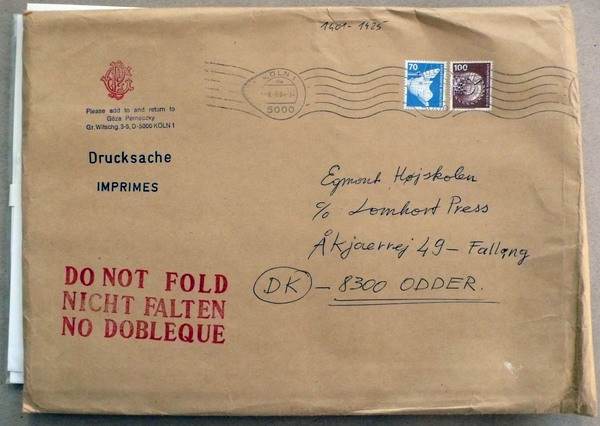 1401-1425
KÖLN 1
5000
70
100
Please add to and return to
Géza Perneczky
Gr. Witschg. 3-5, D-5000 KÖLN 1
Drucksache
IMPRIMES
Egmont Højskolen
c/o Lomhort Press
Åkjaervej 49 – Falling
DK – 8300 ODDER.
DO NOT FOLD
NICHT FALTEN
NO DOBLEQUE